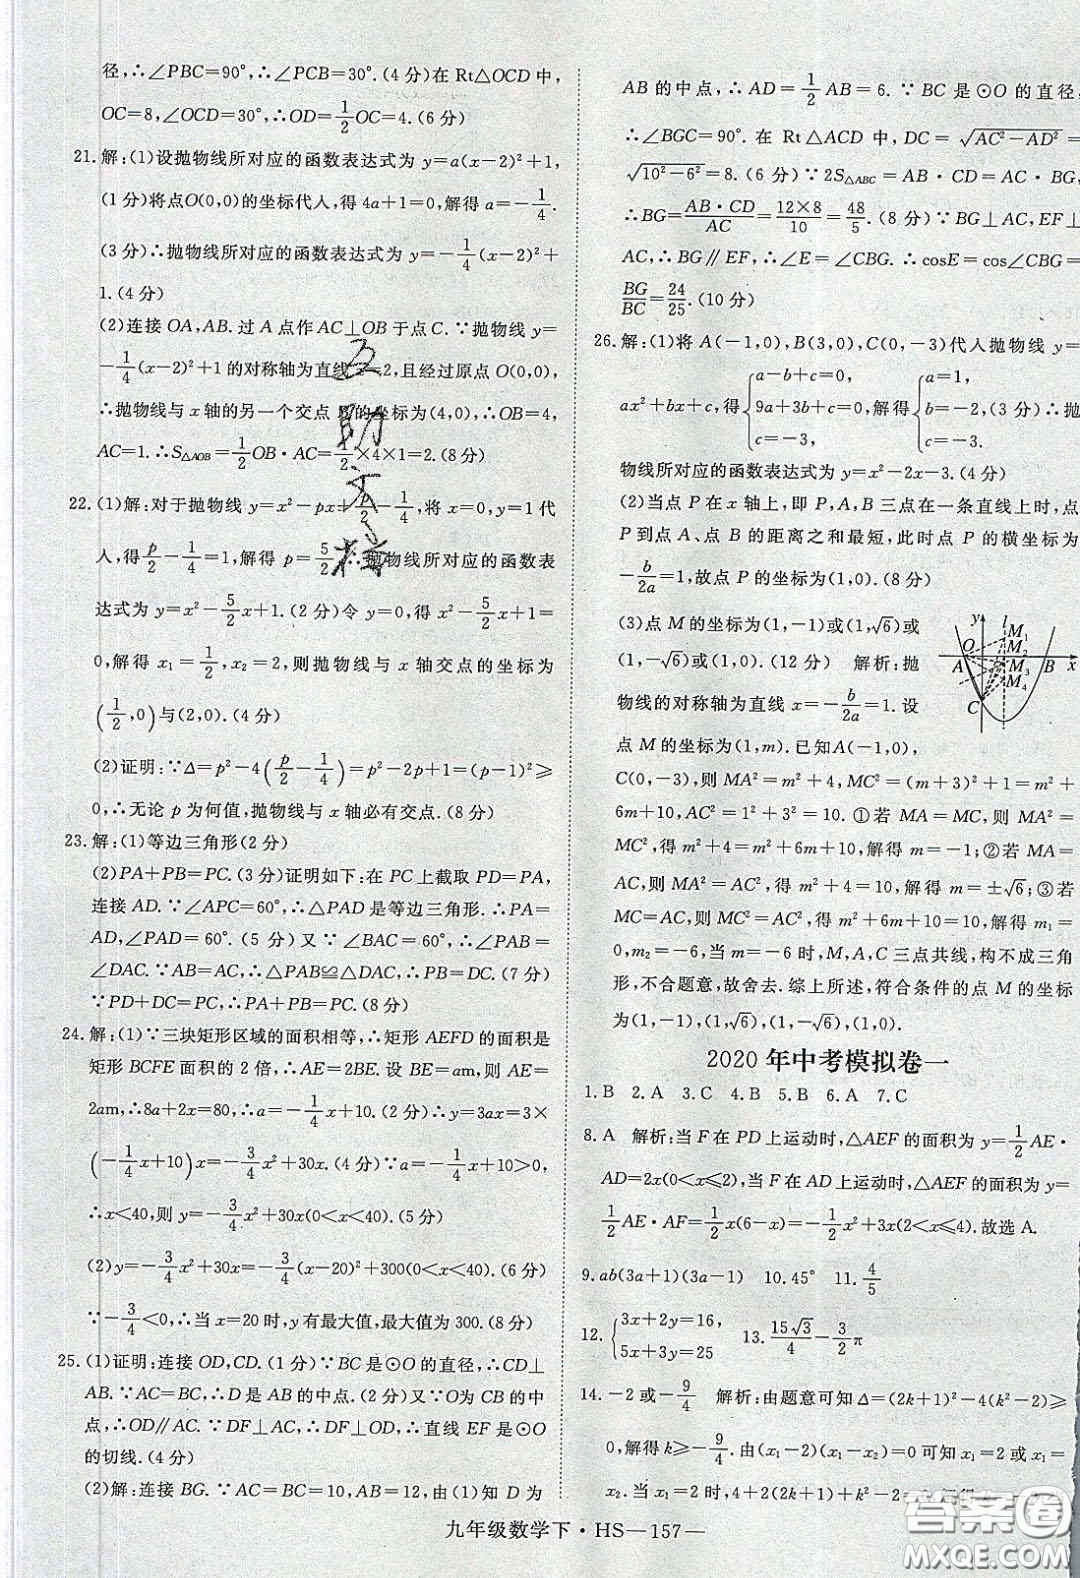 径,∴∠PBC=90°,∴∠PCB=30°.(4分)在 Rt△OCD 中,
OC=8,∠OCD=30°,∴OD=1/2OC=4.(6分)
21.解:(1)设抛物线所对应的函数表达式为 y=a(x-2)²+1,
(1分)将点O(0,0)的坐标代入,得 4a+1=0,解得 a=-1/4.
(3分)∴抛物线所对应的函数表达式为 y=-1/4(x-2)²+
1.(4分)
(2)连接 OA,AB.过 A 点作 AC⊥OB 于点 C.∵抛物线 y=
-1/4(x-2)²+1 的对称轴为直线 =2,且经过原点 O(0,0),
∴抛物线与 x 轴的另一个交点 的坐标为(4,0),∴OB=4,
AC=1.∴S△AOB=1/2OB·AC=1/2×4×1=2.(8分)
22.(1)解:对于抛物线 y=x²-px+p/2-1/4,将 x=0,y=1 代
入,得 p/2-1/4=1,解得 p=5/2.∴抛物线所对应的函数表
达式为 y=x²-5/2x+1.(2分)令 y=0,得 x²-5/2x+1=
0,解得 x₁=1/2,x₂=2,则抛物线与 x 轴交点的坐标为
(1/2,0)与(2,0).(4分)
(2)证明:∵Δ=p²-4(p/2-1/4)=p²-2p+1=(p-1)²≥
0,∴无论 p 为何值,抛物线与 x 轴必有交点.(8分)
23.解:(1)等边三角形(2分)
(2)PA+PB=PC.(3分)证明如下:在 PC 上截取 PD=PA,
连接 AD.∵∠APC=60°,∴△PAD 是等边三角形.∴PA=
AD,∠PAD=60°.(5分)又∵∠BAC=60°,∴∠PAB=
∠DAC.∵AB=AC,∴△PAB≌△DAC,∴PB=DC.(7分)
∵PD+DC=PC,∴PA+PB=PC.(8分)
24.解:(1)∵三块矩形区域的面积相等,∴矩形 AEFD 的面积是
矩形 BCFE 面积的 2 倍,∴AE=2BE.设 BE=am,则 AE=
2am,∴8a+2x=80,∴a=-1/4x+10.∴y=3ax=3×
(-1/4x+10)x=-3/4x²+30x.(4分)∵a=-1/4x+10>0,
∴x<40,则 y=-3/4x²+30x(0<x<40).(5分)
(2)y=-3/4x²+30x=-3/4(x-20)²+300(0<x<40).(6分)
∵-3/4<0,∴当 x=20 时,y 有最大值,最大值为 300.(8分)
25.(1)证明:连接 OD,CD.(1分)∵BC 是⊙O 的直径,∴CD⊥
AB.∵AC=BC,∴D 是 AB 的中点.(2分)又∵O 为 CB 的中
点,∴OD∥AC.∵DF⊥AC,∴DF⊥OD,∴直线 EF 是⊙O
的切线.(4分)
(2)解:连接 BG.∵AC=BC=10,AB=12,由(1)知 D 为
AB 的中点,∴AD=1/2AB=6.∵BC 是⊙O 的直径,
∴∠BGC=90°.在 Rt△ACD 中,DC=√(AC²-AD²)=
√(10²-6²)=8.(6分)∵2S△ABC=AB·CD=AC·BG,
∴BG=AB·CD/AC=12×8/10=48/5.(8分)∵BG⊥AC,EF⊥
AC,∴BG∥EF,∴∠E=∠CBG.∴cosE=cos∠CBG=
BG/BC=24/25.(10分)
26.解:(1)将 A(-1,0),B(3,0),C(0,-3)代入抛物线 y=
ax²+bx+c,得{a-b+c=0, 9a+3b+c=0, c=-3, 解得{a=1, b=-2,(3分)∴抛 c=-3.
物线所对应的函数表达式为 y=x²-2x-3.(4分)
(2)当点 P 在 x 轴上,即 P,A,B 三点在一条直线上时,点
P 到点 A、点 B 的距离之和最短,此时点 P 的横坐标为
-b/2a=1,故点 P 的坐标为(1,0).(8分)
(3)点 M 的坐标为(1,-1)或(1,√6)或
(1,-√6)或(1,0).(12分) 解析:抛
物线的对称轴为直线 x=-b/2a=1.设
点 M 的坐标为(1,m).已知A(-1,0),
y l M₁ M₂ M₃ M₄ O A B x C
C(0,-3),则 MA²=m²+4,MC²=(m+3)²+1=m²+
6m+10,AC²=1²+3²=10.①若 MA=MC,则 MA²=
MC²,得 m²+4=m²+6m+10,解得 m=-1;②若 MA=
AC,则 MA²=AC²,得 m²+4=10,解得 m=±√6;③若
MC=AC,则 MC²=AC²,得 m²+6m+10=10,解得 m₁=
0,m₂=-6,当 m=-6 时,M,A,C 三点共线,构不成三角
形,不合题意,故舍去.综上所述,符合条件的点 M 的坐标
为(1,-1),(1,√6),(1,-√6),(1,0).
2020 年中考模拟卷一
1.B 2.A 3.C 4.B 5.B 6.A 7.C
8.A 解析:当 F 在 PD 上运动时,△AEF 的面积为 y=1/2AE·
AD=2x(0<x≤2),当 F 在 AD 上运动时,△AEF 的面积为 y=
1/2AE·AF=1/2x(6-x)=-1/2x²+3x(2<x≤4).故选 A.
9.ab(3a+1)(3a-1) 10.45° 11.4/5
12.{3x+2y=16, 5x+3y=25 13.15√3/4-3/2π
14.-2或-9/4 解析:由题意可知 Δ=(2k+1)²-4(k²-2)≥
0,解得 k≥-9/4.由(x₁-2)(x₁-x₂)=0 可知 x₁=2 或 x₁=
x₂.当 x₁=2 时,4+2(2k+1)+k²-2=0,解得
九年级数学下·HS—157—
互助文档
答案圈
MXQE.COM